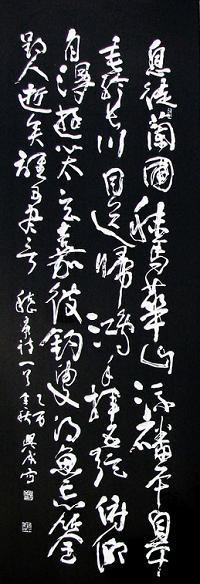 息徒蘭圃秣馬華山流磻平皋
垂綸長川目送歸鴻手揮五絃俯仰
自得遊心太玄嘉彼釣叟得魚忘筌
郢人逝矣誰可盡言
嵇康詩一首